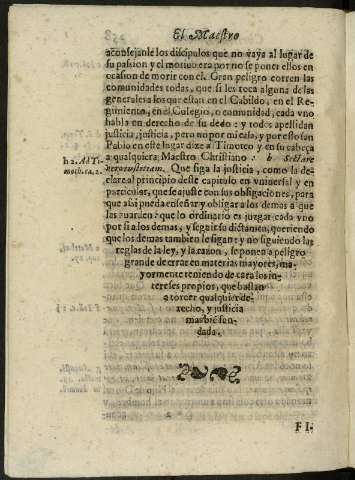 El Maestro
aconsejanle los discipulos que no vaya al lugar de
su pasion y el motiuo era por no se poner ellos en
ocasion de morir con èl. Gran peligro corren las
comunidades todas, que si les toca alguna de las
generales a los que estan en el Cabildo, en el Re-
gimiento, en el Colegio, o comunidad, cada vno
habla en derecho de su dedo: y todos apellidan
justicia, justicia, pero no por mi casa, y por esso san
Pablo en este lugar dize a Timoteo y en su cabeça
h 2. Ad Ti-
moth. ca. 2.
a qualquiera Maestro Christiano: h Sectare
vero iustitiam. Que siga la justicia, como la de-
clarè al principio deste capitulo en vniuersal y en
particular, que se ajuste con sus obligaciones, para
que assi pueda enseñar y obligar a los demas a que
las guarden: que lo ordinario es juzgar cada vno
por si a los demas, y seguir su dictamen, queriendo
que los demas tambien le sigan: y no siguiendo las
reglas de la ley, y la razon, se ponen a peligro
grande de errar en materias mayores, ma-
yormente teniendo de cara los in-
tereses propios, que bastan
a torcer qualquier de-
recho, y justicia
mas bien fun-
dada.
FI-